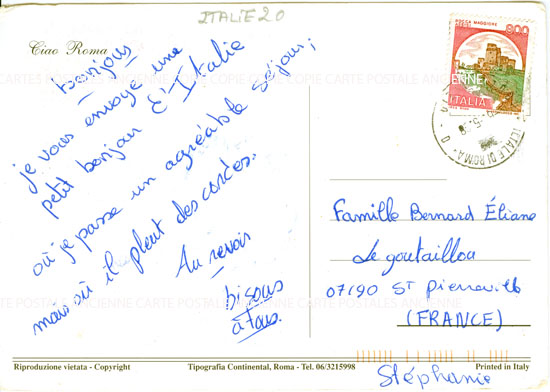 ITALIE 20
Ciao Roma
bonjour
je vous envoye une
petit bonjour d'Italie
où je passe un agréable séjour;
mais où il pleut des cordes.
Au revoir
bisous
à tous.
ROCCA MAGGIORE
800
ITALIA
ROMA
Famille Bernard Éliane
Le goutaillou
07190 St Pierreville
(FRANCE)
Stéphanie
CARTE POSTALE ANCIENNE
Riproduzione vietata - Copyright
Tipografia Continental, Roma - Tel. 06/3215998
Printed in Italy